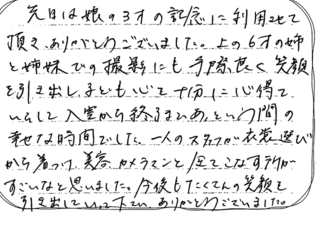 先日は娘の3才の記念に利用させて
頂き、ありがとうございました。上の6才の姉
と姉妹での撮影にも手際良く笑顔
を引き出し、子どもいじて十分に心得て
いらして入室から終るまであっという間の
幸せな時間でした。一人のスタッフが衣装選び
から着つけ、美容、カメラマンと全てこなす
すごいなと思いました。今後もたくさんの笑顔を
引き出していって下さい。ありがとうございました。